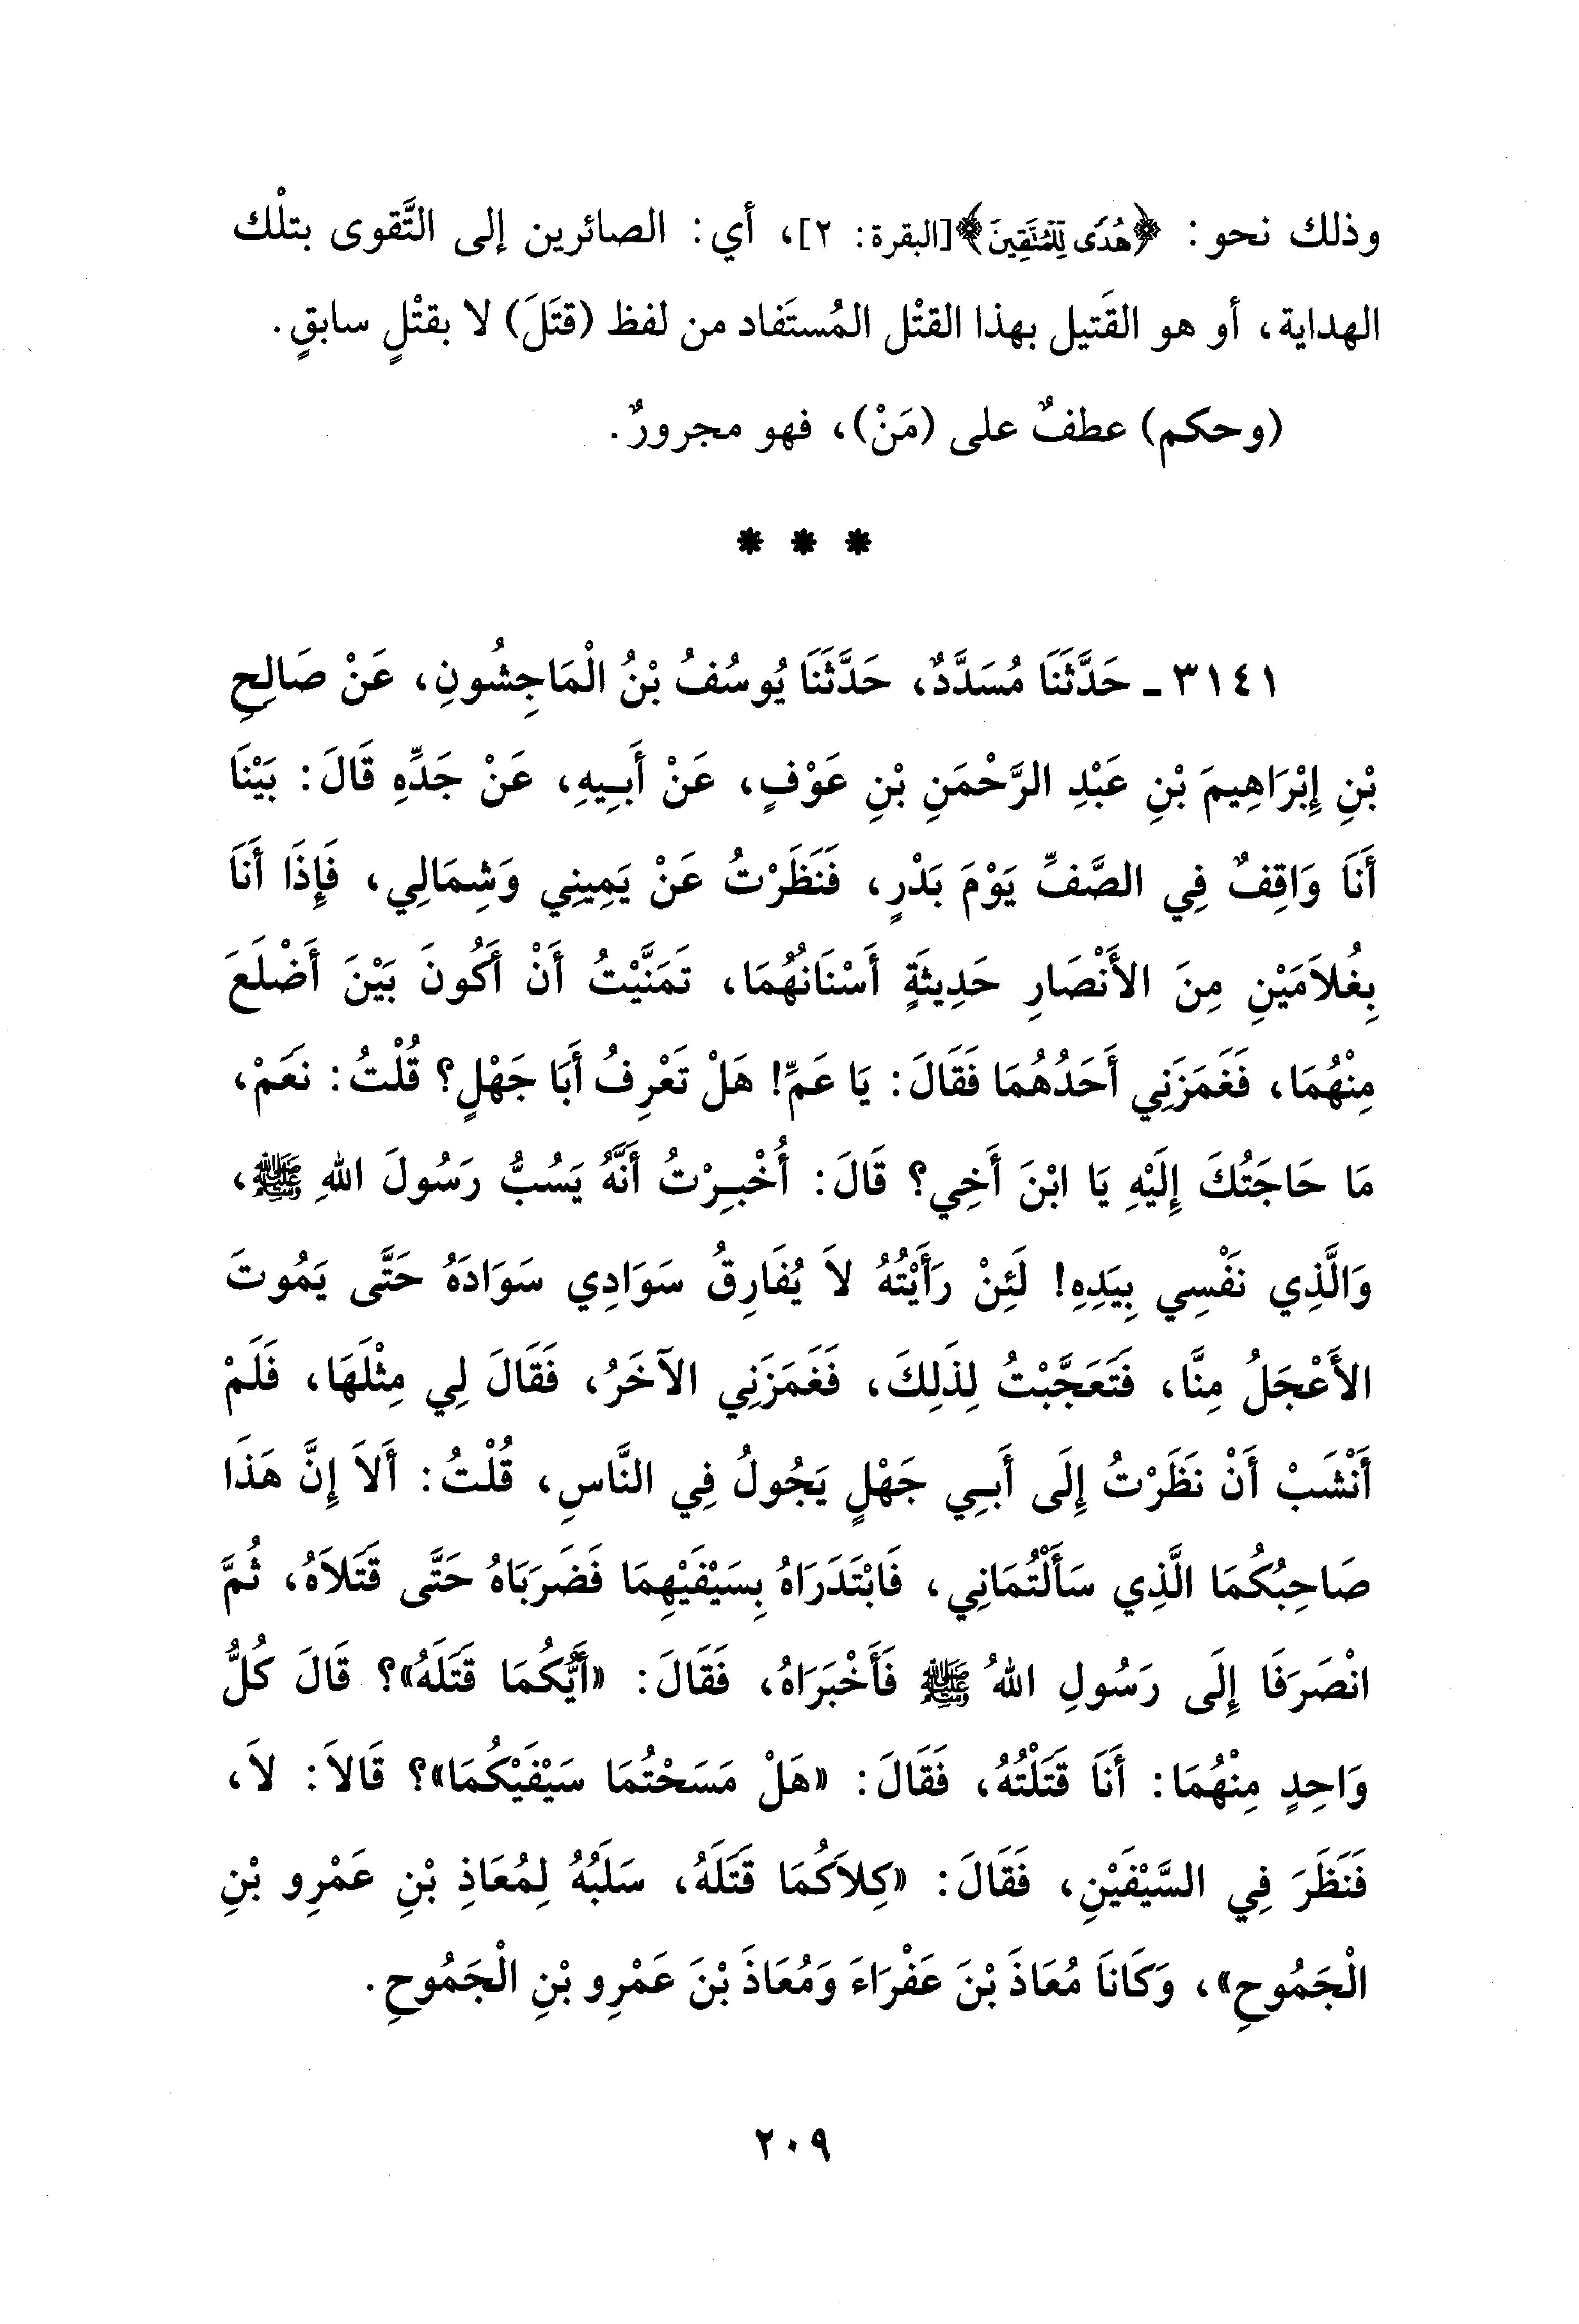 وذلك نحو: ﴿هُدًى لِلْمُتَّقِينَ﴾[البقرة: ٢]، أي: الصائرين إلى التَّقوى بتلْك
الهداية، أو هو القَتيل بهذا القتْل المُستَفاد من لفظ (قتَلَ) لا بقتْلٍ سابقٍ.
(وحكم) عطفٌ على (مَنْ)، فهو مجرورٌ.
* * *
٣١٤١ ـ حَدَّثَنَا مُسَدَّدٌ، حَدَّثَنَا يُوسُفُ بْنُ الْمَاجِشُونِ، عَنْ صَالِحِ
بْنِ إِبْرَاهِيمَ بْنِ عَبْدِ الرَّحْمَنِ بْنِ عَوْفٍ، عَنْ أَبِيهِ، عَنْ جَدِّهِ قَالَ: بَيْنَا
أَنَا وَاقِفٌ فِي الصَّفِّ يَوْمَ بَدْرٍ، فَنَظَرْتُ عَنْ يَمِينِي وَشِمَالِي، فَإِذَا أَنَا
بِغُلاَمَيْنِ مِنَ الأَنْصَارِ حَدِيثَةٍ أَسْنَانُهُمَا، تَمَنَّيْتُ أَنْ أَكُونَ بَيْنَ أَضْلَعَ
مِنْهُمَا، فَغَمَزَنِي أَحَدُهُمَا فَقَالَ: يَا عَمِّ! هَلْ تَعْرِفُ أَبَا جَهْلٍ؟ قُلْتُ: نَعَمْ،
مَا حَاجَتُكَ إِلَيْهِ يَا ابْنَ أَخِي؟ قَالَ: أُخْبِرْتُ أَنَّهُ يَسُبُّ رَسُولَ اللهِ ﷺ،
وَالَّذِي نَفْسِي بِيَدِهِ! لَئِنْ رَأَيْتُهُ لاَ يُفَارِقُ سَوَادِي سَوَادَهُ حَتَّى يَمُوتَ
الأَعْجَلُ مِنَّا، فَتَعَجَّبْتُ لِذَلِكَ، فَغَمَزَنِي الآخَرُ، فَقَالَ لِي مِثْلَهَا، فَلَمْ
أَنْشَبْ أَنْ نَظَرْتُ إِلَى أَبِي جَهْلٍ يَجُولُ فِي النَّاسِ، قُلْتُ: أَلاَ إِنَّ هَذَا
صَاحِبُكُمَا الَّذِي سَأَلْتُمَانِي، فَابْتَدَرَاهُ بِسَيْفَيْهِمَا فَضَرَبَاهُ حَتَّى قَتَلاَهُ، ثُمَّ
انْصَرَفَا إِلَى رَسُولِ اللهُ ﷺ فَأَخْبَرَاهُ، فَقَالَ: «أَيُّكُمَا قَتَلَهُ»؟ قَالَ كُلُّ
وَاحِدٍ مِنْهُمَا: أَنَا قَتَلْتُهُ، فَقَالَ: «هَلْ مَسَحْتُمَا سَيْفَيْكُمَا»؟ قَالاَ: لاَ،
فَنَظَرَ فِي السَّيْفَيْنِ، فَقَالَ: «كِلاَكُمَا قَتَلَهُ، سَلَبُهُ لِمُعَاذِ بْنِ عَمْرِو بْنِ
الْجَمُوحِ»، وَكَانَا مُعَاذَ بْنَ عَفْرَاءَ وَمُعَاذَ بْنَ عَمْرِو بْنِ الْجَمُوحِ.
٢٠٩